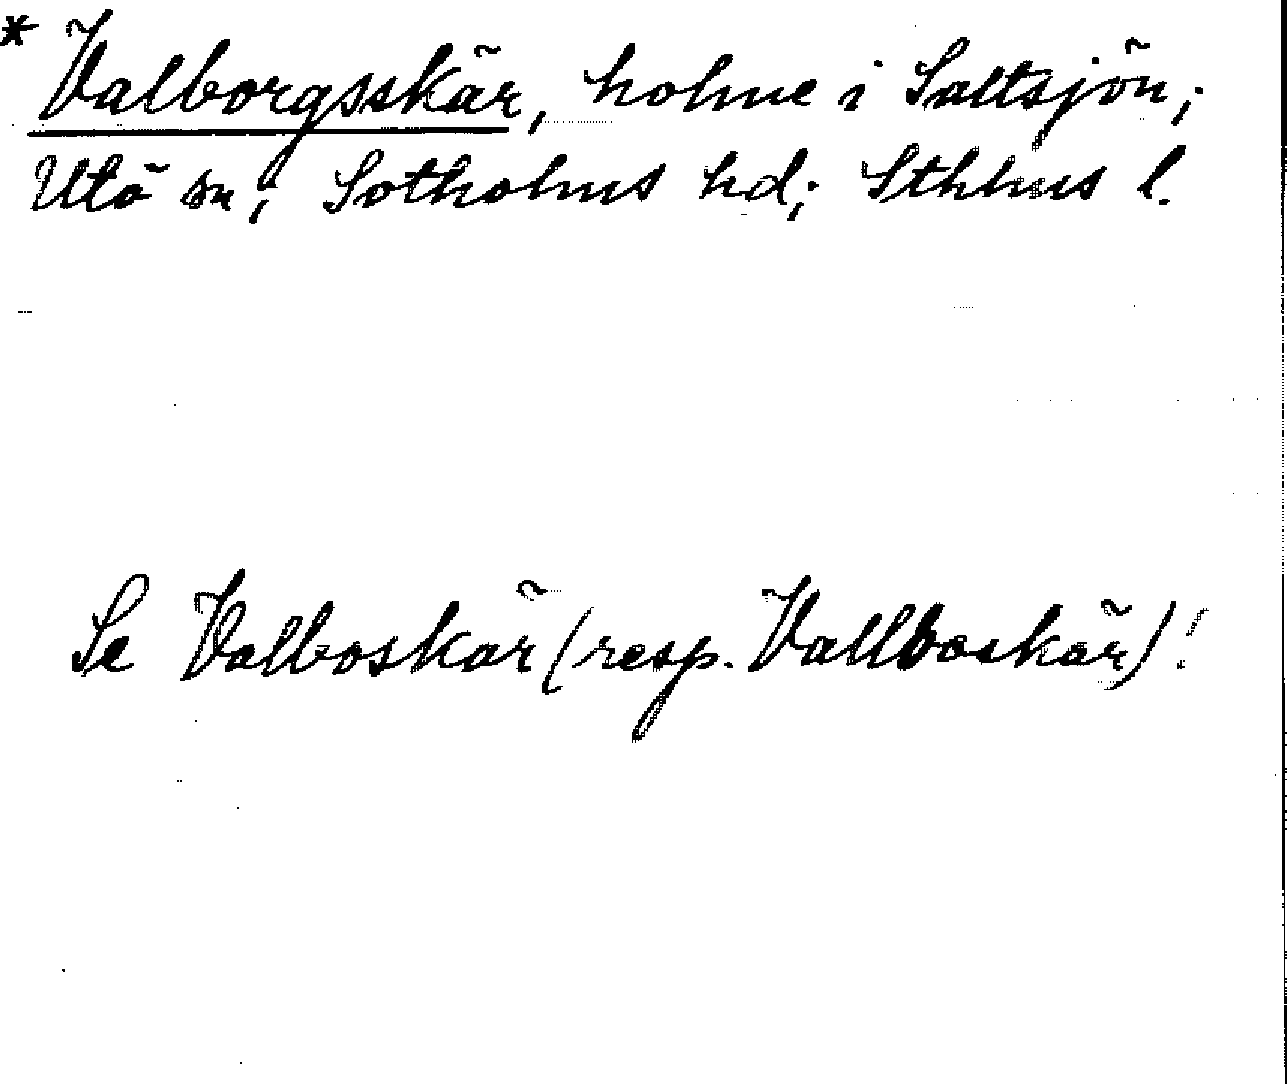 * Valborgsskär, holme i Saltsjön;
Utö sn; Sotholms hd; Sthlms l.
Se Valboskär (resp. Vallboskär)!